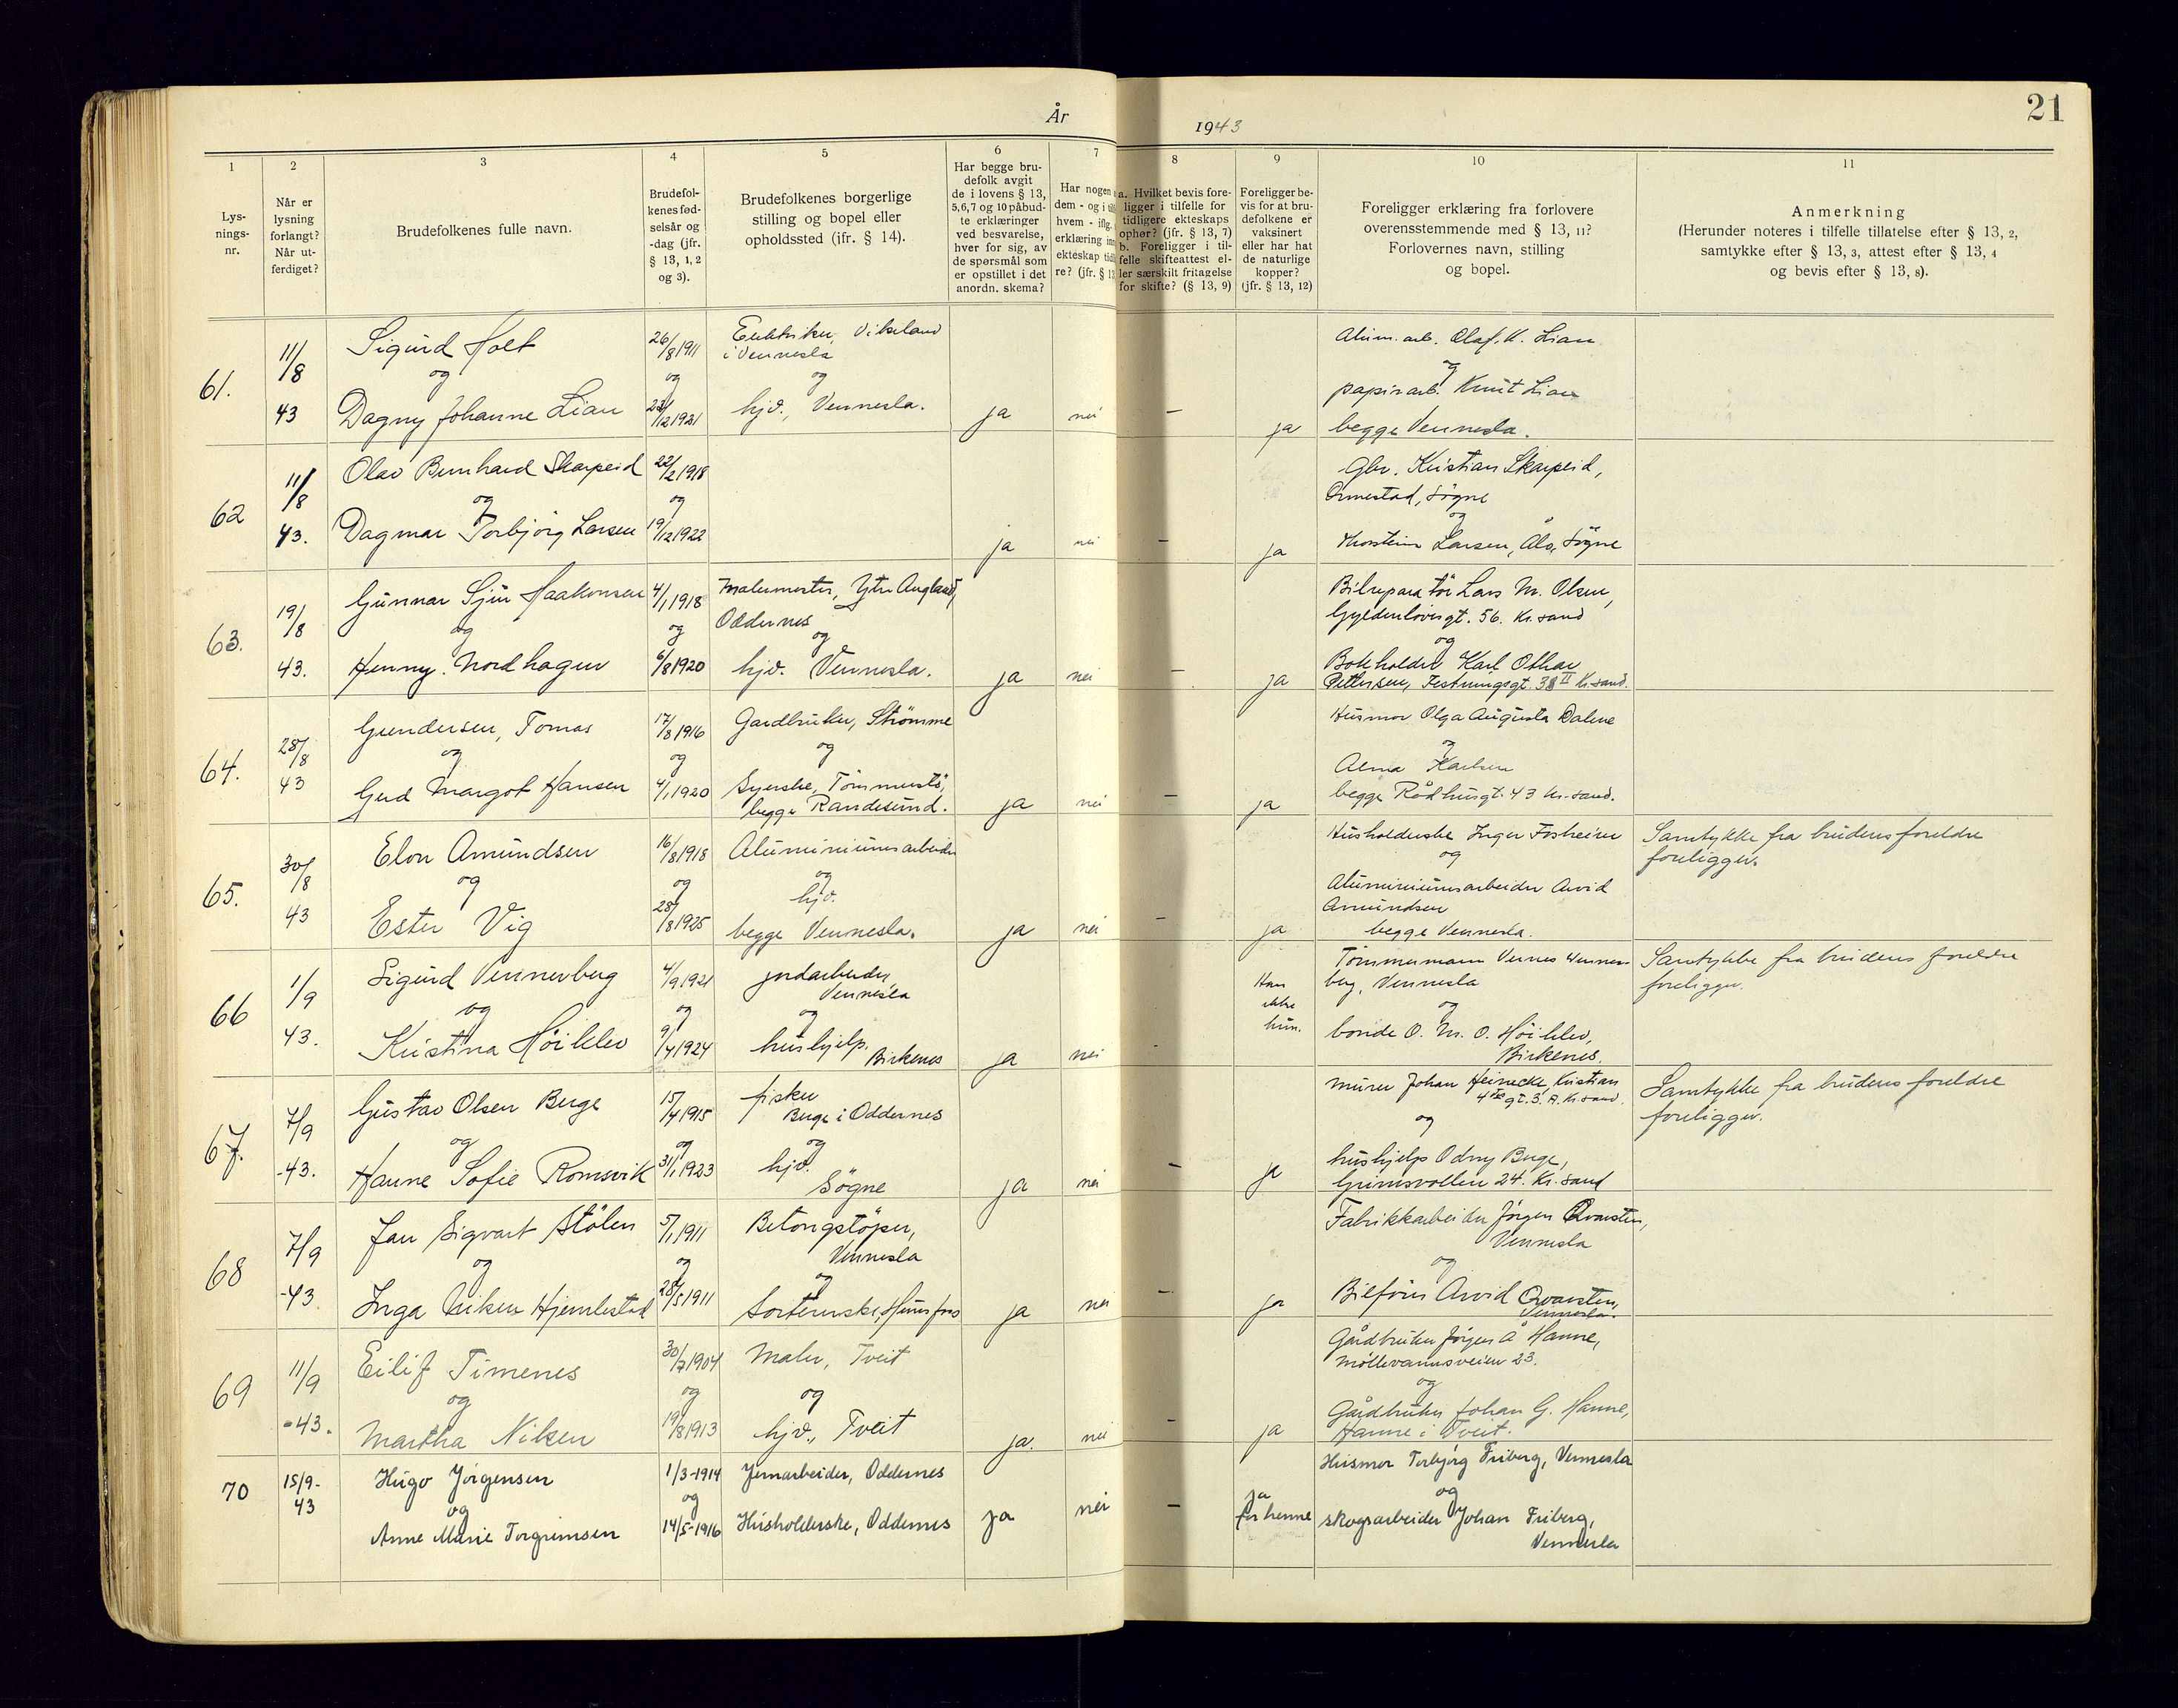 År
1943
21
1
2
3
4
5
6
7
8
9
10
11
Lys-
nings-
nr.
Når er
lysning
forlangt?
Når ut-
ferdiget?
Brudefolkenes fulle navn.
Brudefol-
kenes fød-
selsår og
-dag (jfr.
§ 13, 1, 2
og 3).
Brudefolkenes borgerlige
stilling og bopel eller
opholdssted (jfr. § 14).
Har begge bru-
defolk avgit
de i lovens § 13,
5, 6, 7 og 10 påbud-
te erklæringer
ved besvarelse,
hver for sig, av
de spørsmål som
er opstillet i det
anordn. skema?
Har nogen
dem - og i
hvem - iflg.
erklæring
ekteskap
re? (jfr. § 13
a. Hvilket bevis fore-
ligger i tilfelle for
tidligere ekteskaps
ophør? (jfr. § 13, 7)
b. Foreligger i til-
felle skifteattest el-
ler særskilt fritagelse
for skifte? (§ 13, 9)
Foreligger be-
vis for at bru-
defolkene er
vaksinert
eller har hat
de naturlige
kopper?
(jfr. § 13, 12)
Foreligger erklæring fra forlovere
overensstemmende med § 13, 11?
Forlovernes navn, stilling
og bopel.
Anmerkning
(Herunder noteres i tilfelle tillatelse efter § 13, 2,
samtykke efter § 13, 3, attest efter § 13, 4
og bevis efter § 13, 8).
61.
11/8
43
Sigurd Holt
og
Dagny Johanne Lian
26/8 1911
og
23/12 1921
Vikeland
i Vennesla
og
hjv., Vennesla.
ja
nei
-
ja
Alum. arb. Olaf. K. Lian
og
papirarb. Knut Lian
begge Vennesla.
62
11/8
43.
Olav Bernhard Skarpeid
og
Dagmar Torbjörg Larsen
22/2 1918
og
19/12 1922
ja
nei
-
ja
Gbr. Kristian Skarpeid,
Ormestad, Søgne
og
Thorstein Larsen, Ålo, Søgne
63.
19/8
43.
Gunnar Sjur Haakonsen
og
Henny. Nordhagen
4/1 1918
og
6/8 1920
Malermester, Ytre Augland,
Oddernes
og
hjv. Vennesla.
ja
nei
-
ja
Bilreparatör Lars M. Olsen,
Gyldenløvesgt. 56. Kr.sand
og
Bokholder Karl Othar
Pettersen, Festningsgt. 38 II Kr.sand.
64.
28/8
43
Gundersen, Tomas
og
Gerd Margot Hansen
17/8 1916
og
4/1 1920
Gardbruker, Strømme
og
Syerske, Tømmerstö,
begge Randesund.
ja
nei
-
ja
Husmor Olga Augusta Dalene
og
Alma Karlsen
begge Rådhusgt. 43 Kr.sand.
65.
30/8
43
Elon Amundsen
og
Ester Vig
16/8 1918
og
28/8 1925
Aluminiumsarbeider
og
hjv.
begge Vennesla.
ja
nei
-
ja
Husholderske Inger Fosheim
og
Aluminiumsarbeider Arvid
Amundsen
begge Vennesla.
Samtykke fra brudens foreldre
foreligger.
66
1/9
43.
Sigurd Vennerberg
og
Kristina Höiklev
4/9 1921
og
9/4 1924
jordarbeider
Vennesla
og
hushjelp.
Birkenes
ja
nei
-
Han
ikke
hun.
Tömmermann Vernes Venner-
berg, Vennesla
og
bonde O. M. O. Höiklev,
Birkenes.
Samtykke fra brudens foreldre
foreligger.
67.
7/9
-43.
Gustav Olsen Berge
og
Hanne Sofie Romsvik
15/4 1915
og
31/1 1923
fisker
Berge i Oddernes
og
hjv.
Søgne
ja
nei
-
ja
murer Johan Heinecke, Kristian
4des gt. 3. A. Kr.sand.
og
hushjelp Odny Berge,
Grimsvollen 24. Kr.sand
Samtykke fra brudens foreldre
foreligger.
68
7/9
-43
Jan Sigvart Stölen
og
Inga Hjemlestad
5/1 1911
og
28/5 1911
Betongstöper,
Vennesla
og
Sortererske, Hunsfos
ja
nei
-
ja
Fabrikkarbeider Jörgen Qvarsten,
Vennesla
og
Bilförer Arvid Qvarsten,
Vennesla.
69
11/9
-43.
Eilif Timenes
og
Martha Nilsen
30/7 1904
og
19/8 1913
Maler, Tveit
og
hjv., Tveit
ja.
nei
-
ja
Gårdbruker Jörgen Å Hanne,
Möllevannsveien 23.
og
Gårdbruker Johan G. Hanne,
Hanne i Tveit.
70
15/9-
43
Hugo Jørgensen
og
Anne Marie Torgrimsen
1/3-1914
og
14/5-1916
Jernarbeider, Oddernes
Husholderske, Oddernes
ja
nei
-
ja
for henne
Husmor Torbjørg Friberg, Vennesla
og
skogsarbeider Johan Friberg,
Vennesla